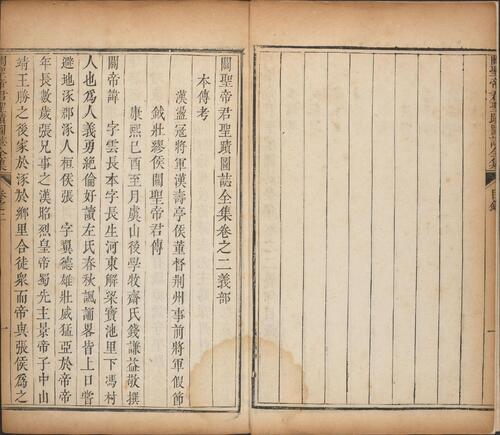 關聖帝君聖蹟圖誌全集
目錄
一
關聖帝君聖蹟圖誌全集卷之二義部
本傳考
漢盪寇將軍漢壽亭侯董督荆州事前將軍假節
鉞壯繆侯關聖帝君傳
康熙己酉至月虞山後學牧齋氏錢謙益敬撰
關帝諱　字雲長本字長生河東解梁寶池里下馮村
人也爲人義勇絶倫好讀左氏春秋諷誦畧皆上口嘗
避地涿郡涿人桓侯張　字翼德雄壯威猛亞於帝帝
年長數歲張兄事之漢昭烈皇帝蜀先主景帝子中山
靖王勝之後家於涿於鄉里合徒衆而帝與張侯爲之
關聖帝君聖蹟圖誌全集
卷二
一